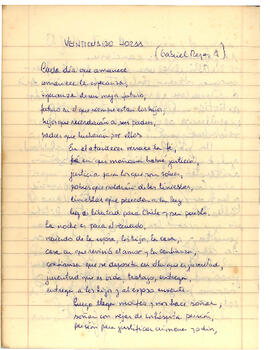 VEINTICUATRO HORAS
(Gabriel Reyes A.)
Cada día que amanece
amanece la esperanza,
esperanza de un mejor futuro,
futuro si el que siempre estan los hijos,
hijos que recordarán a sus padres,
padres que lucharon por ellos
En el atardecer renace la fe,
fe en que mañana habrá justicia,
justicia para los que no saben,
saber que saldrán de las tinieblas
tinieblas que preceden a la luz
luz de libertad para Chile y su pueblo.
La noche es para el recuerdo,
recuerdo de la esposa, los hijos, la casa,
casa en que reinó el amor y la confianza,
confianza que se deposita en ellos que es juventud,
juventud que es vida, trabajo, entrega,
entrega a los hijos y al esposo ausente
Luego llega y nos hace soñar,
soñar con rejas de prisión,
prisión para justificar